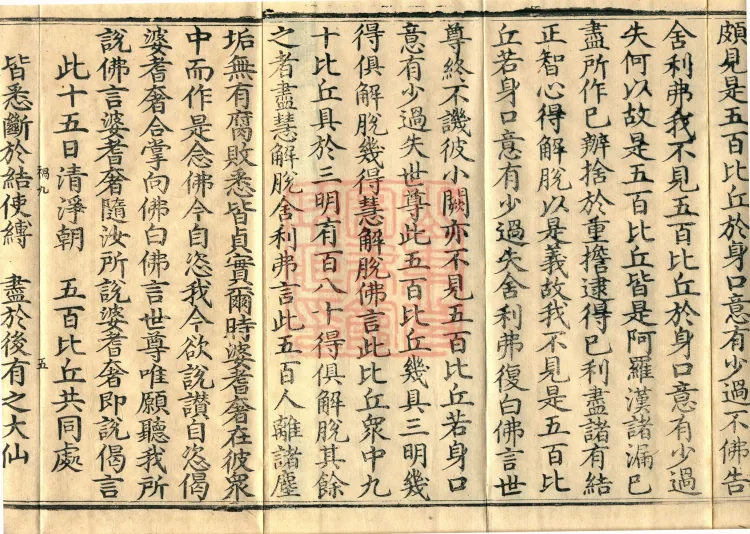 頗見是五百比丘於身口意有少過不佛告
舍利弗我不見五百比丘於身口意有少過
失何以故是五百比丘皆是阿羅漢諸漏已
盡所作已辦捨於重擔逮得已利盡諸有結
正智心得解脫以是義故我不見是五百比
丘若身口意有少過失舍利弗復白佛言世
尊終不譏彼小闕亦不見五百比丘若身口
意有少過失世尊此五百比丘幾具三明幾
得俱解脫幾得慧解脫佛言此比丘衆中九
十比丘具於三明有百八十得俱解脫其餘
之者盡慧解脫舍利弗言此五百人離諸塵
垢無有腐敗悉皆貞實爾時婆耆奢在彼衆
中而作是念佛今自恣我今欲說讚自恣偈
婆耆奢合掌向佛白佛言世尊唯願聽我所
說佛言婆耆奢隨汝所說婆耆奢即說偈言
此十五日清淨朝　五百比丘共同處
皆悉斷於結使縛　盡於後有之大仙
五